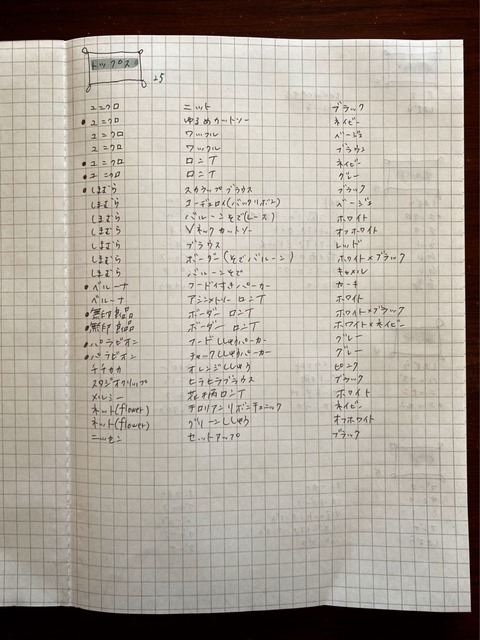 トップス
25
ユニクロ ニット ブラック
• ユニクロ ゆるめカットソー ネイビー
ユニクロ ワッフル ベージュ
ユニクロ ワッフル ブラウン
• ユニクロ ロンT ネイビー
• ユニクロ ロンT グレー
• しまむら スカラップブラウス ブラック
しまむら コーデュロイ(バックリボン) ベージュ
しまむら バルーンそで(レース) ホワイト
しまむら Vネックカットソー オフホワイト
しまむら ブラウス レッド
しまむら ボーダー(そでバルーン) ホワイト×ブラック
しまむら バルーンそで キャメル
• ベルーナ フード付きパーカー カーキ
ベルーナ アシンメトリーロンT ホワイト
• 無印良品 ボーダーロンT ホワイト×ブラック
• 無印良品 ボーダーロンT ホワイト×ネイビー
• パラビオン フードししゅうパーカー グレー
• パラビオン チャックししゅうパーカー グレー
チチカカ オレンジししゅう ピンク
スタジオクリップ ヒラヒラブラウス ブラック
メルシー 花柄ロンT ホワイト
ネット(flower) チロリアンリボンチュニック ネイビー
ネット(flower) グリーンししゅう オフホワイト
ニッセン セットアップ ブラック